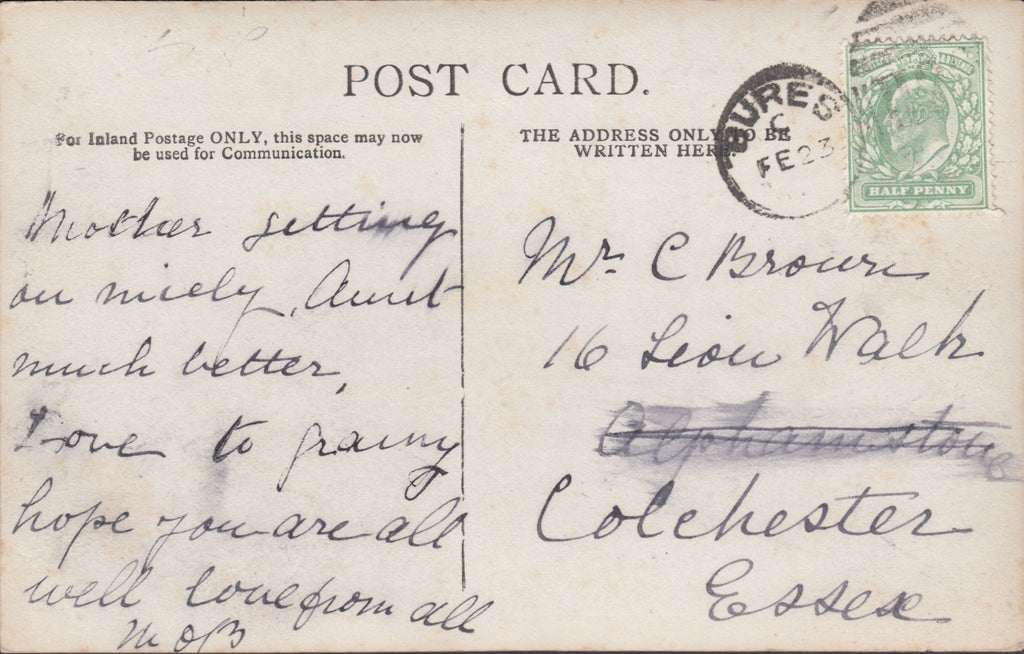 POST CARD.
For Inland Postage ONLY, this space may now
be used for Communication.
Mother getting
on nicely, Aunt
much better,
Love to granny
hope you are all
well love from all
M O B
THE ADDRESS ONLY TO BE
WRITTEN HERE.
BURES
C
FE 23
HALF PENNY
Mr. C Brown
16 Lion Walk
Alphamstone
Colchester
Essex